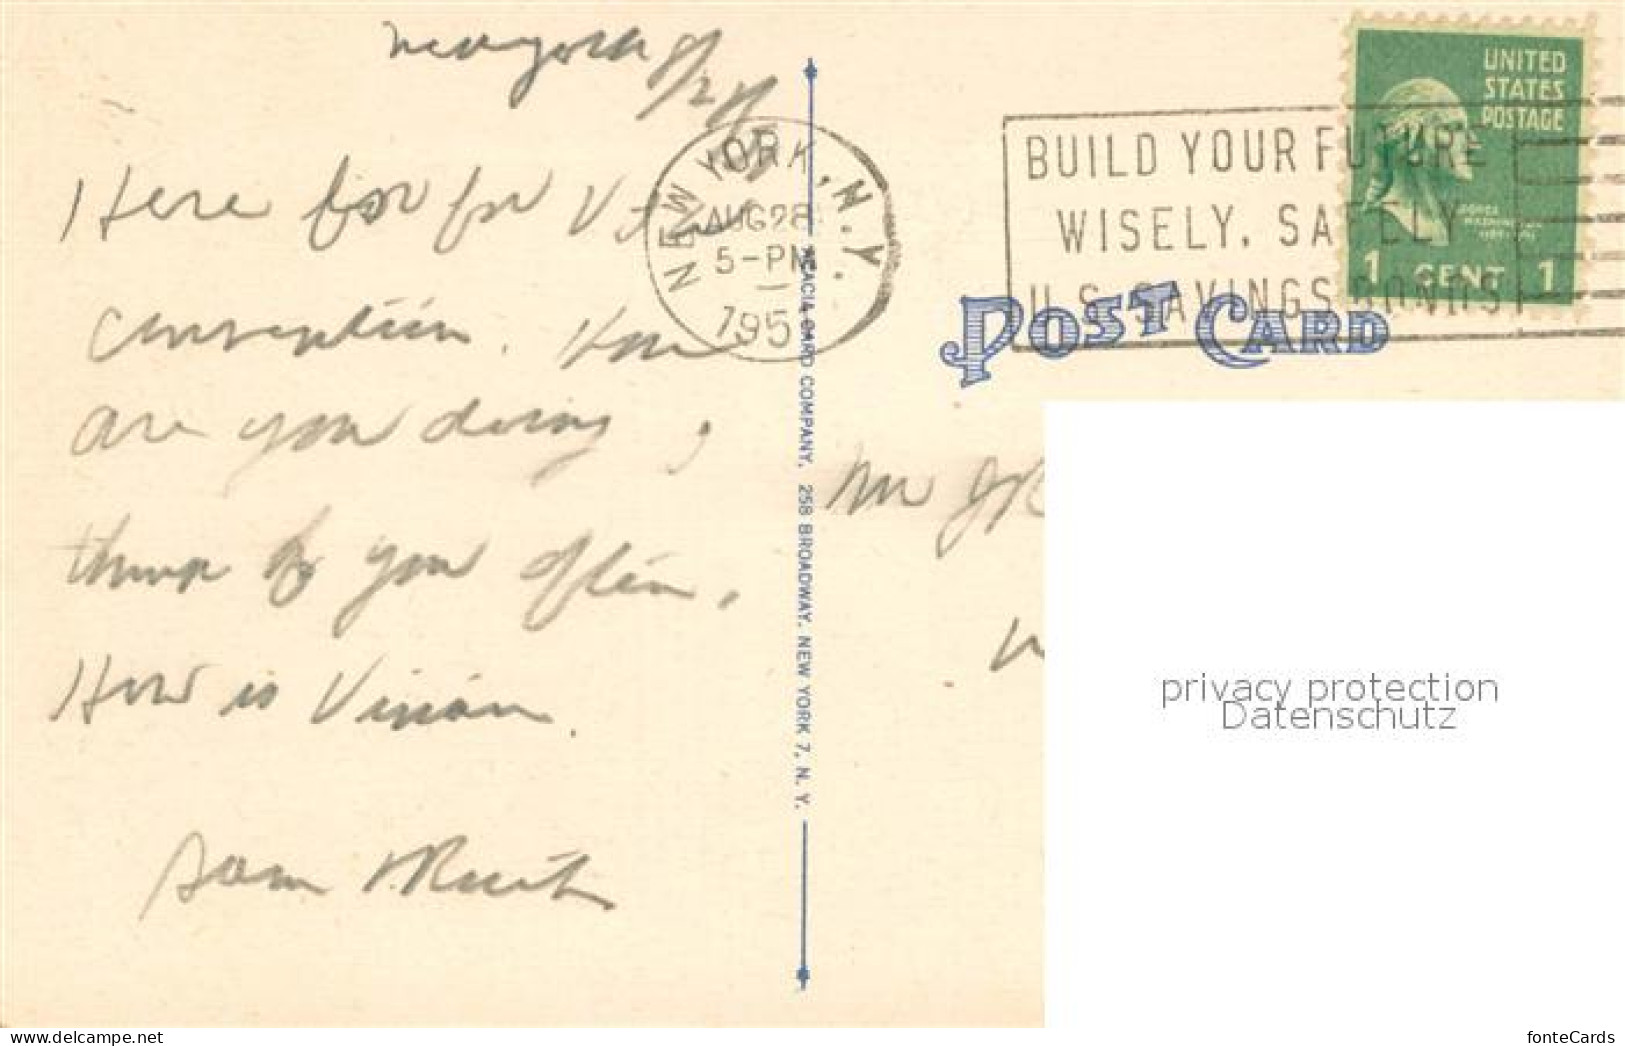 New York 8/27/5
Here for for V
Convention. How
are you doing,
think of you often.
How is Vivian.
Sam & Ruth
NEW YORK, N.Y.
AUG 28
5-PM
195
BUILD YOUR FUTURE
WISELY, SAFELY
U.S. SAVINGS BONDS
UNITED
STATES
POSTAGE
1 CENT 1
POST CARD
ACACIA CARD COMPANY, 258 BROADWAY, NEW YORK 7, N. Y.
Mr
privacy protection
Datenschutz
www.ansichtskarten-center.de
fonteCards